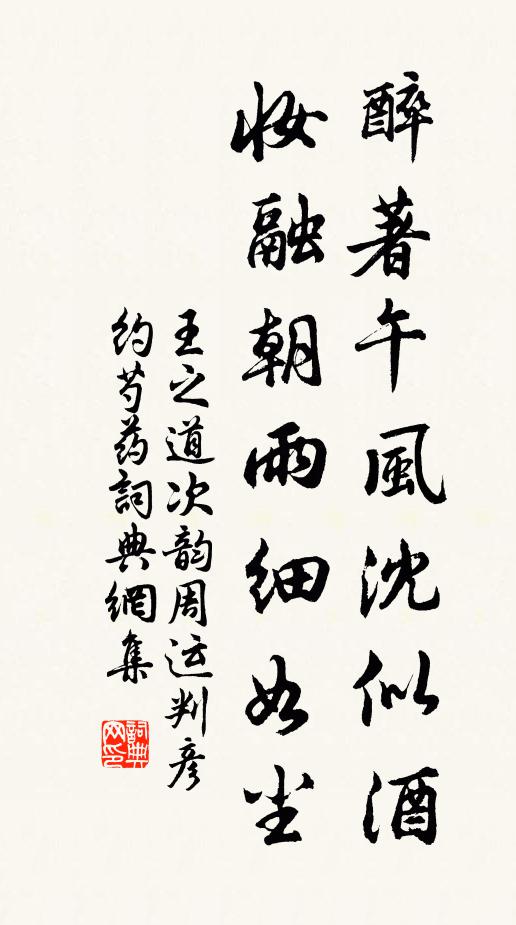 醉著午風沈似酒
妝融朝雨細如尘
王之道次韵周运判彦
约芍药詞典網集
詞典网印